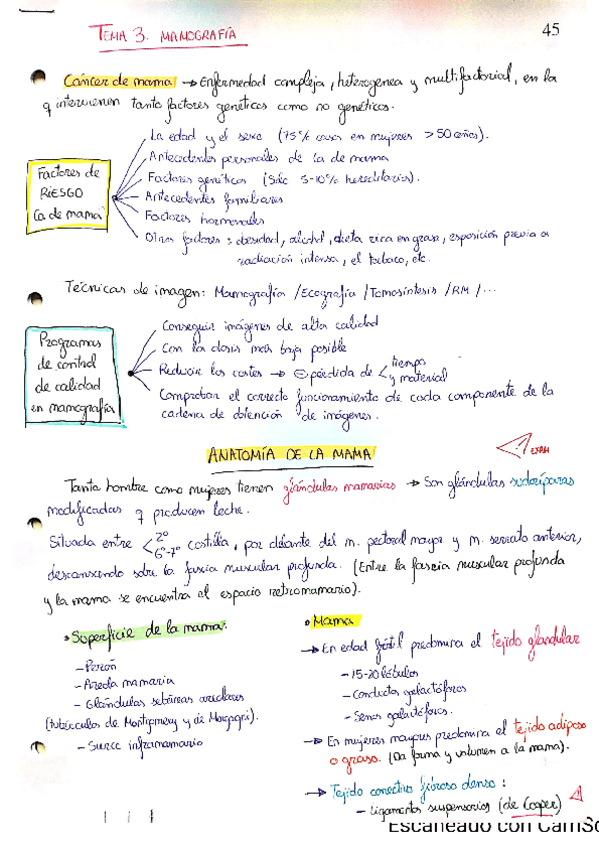 TEMA 3. MAMOGRAFÍA
45
Cáncer de mama → Enfermedad compleja, heterogenea y multifactorial, en la
q intervienen tanto factores genéticos como no genéticos.
Factores de
RIESGO
Ca de mama
La edad y el sexo (75% casos en mujeres > 50 años).
Antecedentes personales de Ca de mama
Factores genéticos (Solo 5-10% hereditarios).
Antecedentes familiares
Factores hormonales
Otros factores: obesidad, alcohol, dieta rica en grasa, exposición previa a
radiación intensa, el tabaco, etc.
Técnicas de imagen: Mamografía / Ecografía / Tomosíntesis / RM / ...
Programas
de control
de calidad
en mamografía
Conseguir imágenes de alta calidad
Con la dosis más baja posible
Reducir los costes → ⊖ pérdida de < tiempo
y material
Comprobar el correcto funcionamiento de cada componente de la
cadena de obtención de imágenes.
ANATOMÍA DE LA MAMA
EXAM
Tanto hombre como mujeres tienen glándulas mamarias → Son glándulas sudoríparas
modificadas q producen leche.
Situada entre < 2º
6º-7º costilla, por delante del m. pectoral mayor y m. serrato anterior,
descansando sobre la fascia muscular profunda. (Entre la fascia muscular profunda
y la mama se encuentra el espacio retromamario).
• Superficie de la mama:
- Pezón
- Areola mamaria
- Glándulas sebáceas areolares
(tubérculos de Montgomery y de Morgagni).
- Surco inframamario
• Mama
→ En edad fértil predomina el tejido glandular
- 15-20 lóbulos
- Conductos galactóforos
- Senos galactóforos.
→ En mujeres mayores predomina el tejido adiposo
o graso. (Da forma y volumen a la mama).
→ Tejido conectivo fibroso denso:
- Ligamentos suspensorios (de Cooper)
Escaneado con CamSc